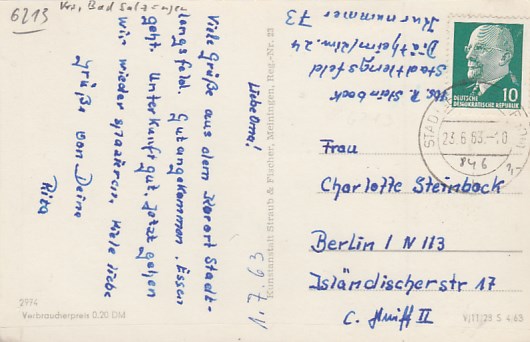 6213 Krs. Bad Salzungen
Liebe Oma!
Viele Grüße aus dem Kurort Stadt-
lengsfeld. Gut angekommen. Essen
geht. Unterkunft gut. Jetzt gehen
wir wieder spazieren. Viele liebe
Grüße von Deine
Rita
2994
Verbraucherpreis 0.20 DM
Kunstanstalt Straub & Fischer, Meiningen, Reg.-Nr. 23
1.7.63
Abs. R. Steinbock
Stadtlengsfeld
Diätheim/Zim. 24
Kurnummer 73
DEUTSCHE
DEMOKRATISCHE REPUBLIK
10
23.6.63.-10
Frau
Charlotte Steinbock
Berlin / N 113
Isländischerstr 17
V/11/28 S 4/63